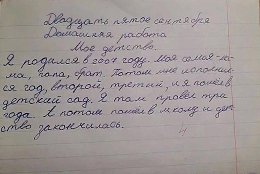 Двадцать пятое сентября
Домашняя работа
Мое детство.
Я родился в 2007 году. Моя семья - ма-
ма, папа, брат. Потом мне исполнил-
ся год, второй, третий, и я пошёл в
детский сад. Я там провёл три
года. А потом пошёл в школу и дет-
ство закончилось.
4